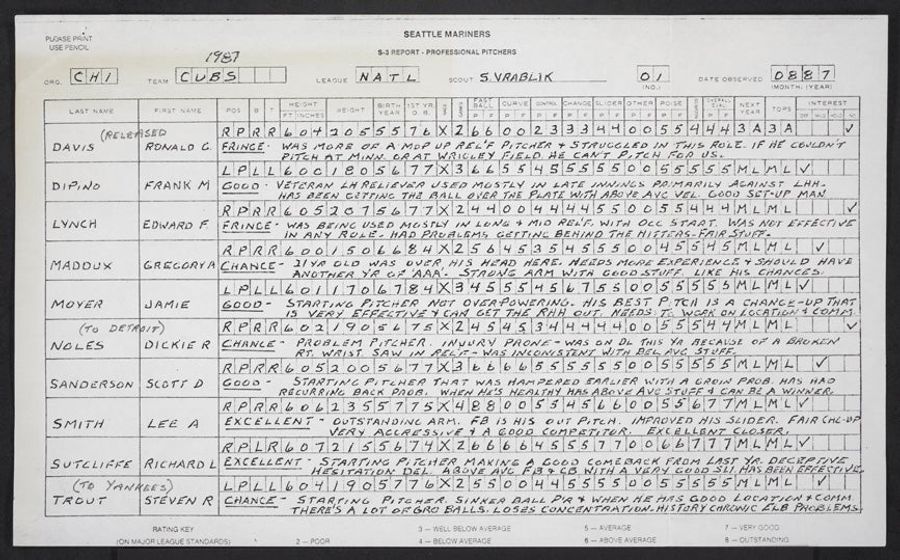 PLEASE PRINT
USE PENCIL
SEATTLE MARINERS
S-3 REPORT - PROFESSIONAL PITCHERS
1987
ORG. CHI TEAM CUBS LEAGUE NATL SCOUT S. VRABLIK 01 (NO.) DATE OBSERVED 0887 (MONTH) (YEAR)
LAST NAME FIRST NAME POS B T HEIGHT FT INCHES WEIGHT BIRTH YEAR 1ST YR. O.B. FAST BALL CURVE CONTROL CHANGE SLIDER OTHER POISE NEXT YEAR TOPS INTEREST
(RELEASED RP R R 6 04 205 55 76 X 2 6 6 0 0 2 3 3 3 4 4 0 0 5 5 4 4 4 3A 3A ✓
DAVIS RONALD G. FRINGE - WAS MORE OF A MOP UP REL'F PITCHER + STRUGGLED IN THIS ROLE. IF HE COULDN'T
PITCH AT MINN. OR AT WRIGLEY FIELD HE CAN'T PITCH FOR US.
LP L L 6 00 180 56 77 X 3 6 6 5 5 4 5 5 5 5 0 0 5 5 5 5 5 ML ML ✓
DIPINO FRANK M GOOD - VETERAN LH RELIEVER USED MOSTLY IN LATE INNINGS PRIMARILY AGAINST LHH.
HAS BEEN GETTING THE BALL OVER THE PLATE WITH ABOVE AVG VEL. GOOD SET-UP MAN
RP R R 6 05 207 56 77 X 2 4 4 0 0 4 4 4 4 5 5 0 5 5 4 4 ML ML ✓
LYNCH EDWARD F FRINGE - WAS BEING USED MOSTLY IN LONG & MID RELF. WITH OCC START. WAS NOT EFFECTIVE
IN ANY ROLE - HAD PROBLEMS GETTING BEHIND THE HITTERS - FAIR STUFF.
RP R R 6 00 150 66 84 X 2 5 6 4 5 3 5 4 5 5 5 0 0 4 5 5 4 5 ML ML ✓
MADDUX GREGORY A CHANCE - 21 YR OLD WAS OVER HIS HEAD HERE. NEEDS MORE EXPERIENCE + SHOULD HAVE
ANOTHER YR OF 'AAA'. STRONG ARM WITH GOOD STUFF. LIKE HIS CHANCES.
LP L L 6 01 170 67 84 X 3 4 5 5 5 4 5 6 7 5 5 0 0 5 5 5 5 5 ML ML ✓
MOYER JAMIE GOOD - STARTING PITCHER NOT OVERPOWERING. HIS BEST PITCH IS A CHANGE-UP THAT
IS VERY EFFECTIVE & CAN GET THE RHH OUT. NEEDS TO WORK ON LOCATION & COMM.
(TO DETROIT) RP R R 6 02 190 56 75 X 2 4 5 4 5 3 4 4 4 4 4 0 0 5 5 5 4 4 ML ML ✓
NOLES DICKIE R CHANCE - PROBLEM PITCHER. INJURY PRONE - WAS ON DL THIS YR BECAUSE OF A BROKEN
RT. WRIST SAW IN REL'F - WAS INCONSISTENT WITH BEL AVG STUFF.
RP R R 6 05 200 56 77 X 3 6 6 6 6 5 5 5 5 5 5 0 0 5 5 5 5 5 ML ML ✓
SANDERSON SCOTT D GOOD - STARTING PITCHER THAT WAS HAMPERED EARLIER WITH A GROIN PROB. HAS HAD
RECURRING BACK PROB. WHEN HE'S HEALTHY HAS ABOVE AVG STUFF & CAN BE A WINNER.
RP R R 6 06 235 57 75 X 4 8 8 0 0 5 5 4 5 6 6 0 0 5 5 6 7 7 ML ML ✓
SMITH LEE A EXCELLENT - OUTSTANDING ARM. FB IS HIS OUT PITCH. IMPROVED HIS SLIDER. FAIR CHG-UP
VERY AGGRESSIVE & A GOOD COMPETITOR. EXCELLENT CLOSER.
RP L R 6 07 215 56 74 X 2 6 6 6 6 4 5 5 5 7 7 0 0 6 6 7 7 7 ML ML ✓
SUTCLIFFE RICHARD L EXCELLENT - STARTING PITCHER MAKING A GOOD COMEBACK FROM LAST YR. DECEPTIVE
HESITATION DEL. ABOVE AVG FB & CB WITH A VERY GOOD SLI. HAS BEEN EFFECTIVE.
(TO YANKEES) LP L L 6 04 190 57 76 X 2 5 5 0 0 4 4 5 5 5 5 0 0 5 5 5 5 5 ML ML ✓
TROUT STEVEN R CHANCE - STARTING PITCHER. SINKER BALL P'R & WHEN HE HAS GOOD LOCATION & COMM
THERE'S A LOT OF GRO BALLS. LOSES CONCENTRATION. HISTORY CHRONIC ELB PROBLEMS.
RATING KEY 3 — WELL BELOW AVERAGE 5 — AVERAGE 7 — VERY GOOD
(ON MAJOR LEAGUE STANDARDS) 2 — POOR 4 — BELOW AVERAGE 6 — ABOVE AVERAGE 8 — OUTSTANDING